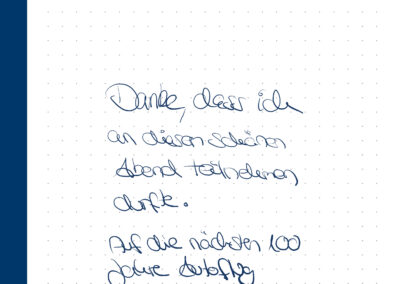 Danke, dass ich
an diesen schönen
Abend teilnehmen
durfte.
Auf die nächsten 100
Jahre Autoflug